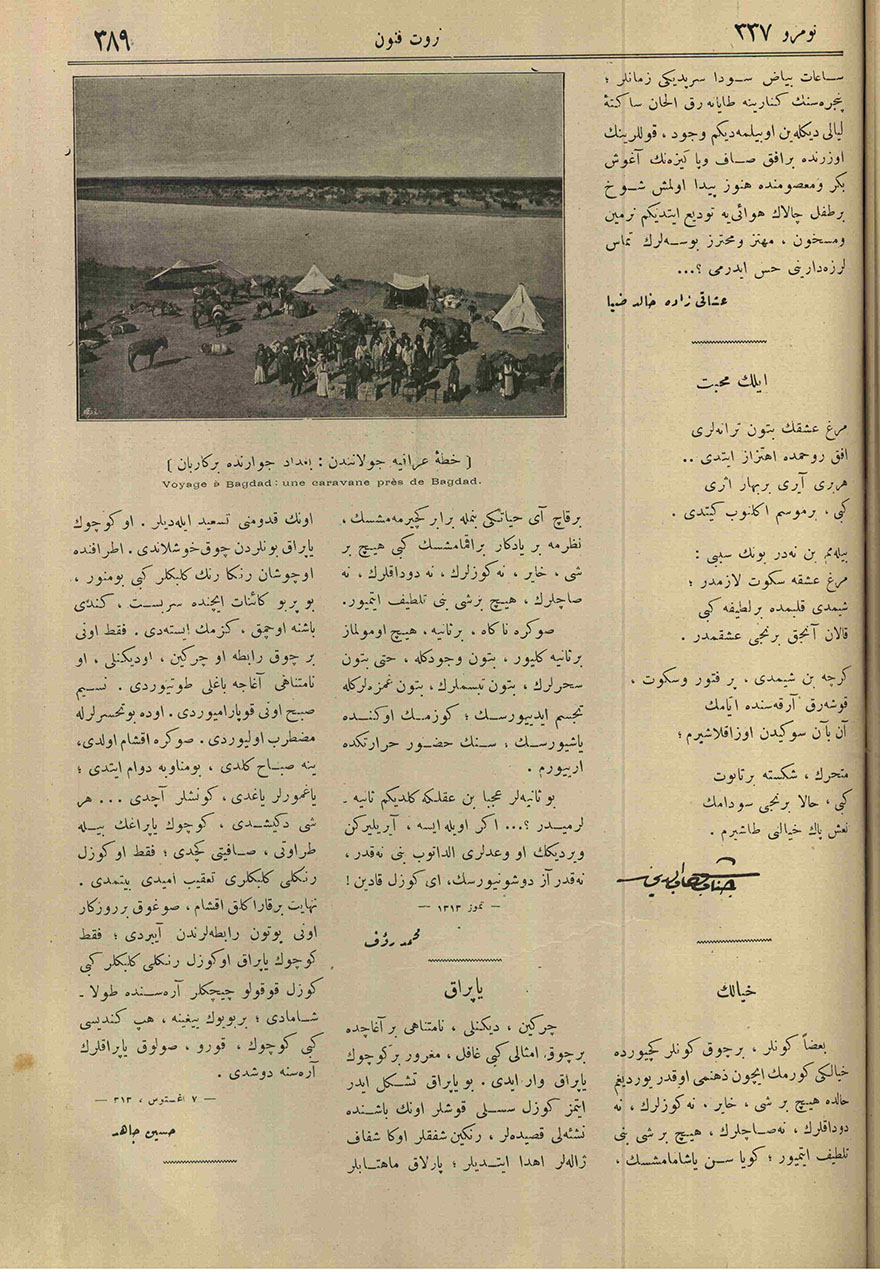 نومرو ٣٣٧
ثروت فنون
٣٨٩
ساعات بياض سودا سرپديكى زمانلر ؛
پنجره‌سنك كنارينه طايانه‌رق الحان ساكتهٔ
ليالى ديكله‌ين اوبيلمه‌ديكم وجود ، قوللرينك
اوزرنده برافق صاف وپاكيزه‌نك آغوش
بكر ومعصومنده هنوز پيدا اولمش شوخ
برطفل چالاك هوائى‌يه توديع ايتديكم نرمين
ومسخون ، مهتز ومحترز بوسه‌لرك تماس
لرزه‌دارينى حس ايدرمى ؟...
عشاقى زاده خالد ضيا
ايلك محبت
مرغ عشقك بتون ترانه‌لرى
افق روحمده اهتزاز ايتدى ..
هربرى آيرى بربهار اثرى
كبى ، برموسم اكلنوب كيتدى .
بيله‌نم بن نه‌در بونك سببى :
مرغ عشقه سكوت لازمدر ؛
شيمدى قلبمده برلطيفه كبى
قالان آنجق برنجى عشقمدر .
كرچه بن شيمدى ، پر فتور وسكوت ،
قوشه‌رق آرقه‌سنده ايامك
آن بآن سوكيدن اوزاقلاشيرم ؛
متحرك ، شكسته برتابوت
كبى ، حالا برنجى سودامك
نعش پاك خيالنى طاشيرم .
جناب شهاب الدين
خيالك
بعضاً كونلر ، برچوق كونلر كچيورده
خيالكى كورمك ايچون ذهنمى اوقدر يورديغم
حالده هيچ بر شى ، خاير . نه‌كوزلرك ، نه
دوداقلرك ، نه‌صاچلرك ، هيچ بر شى بنى
تلطيف ايتميور ؛ كويا سن ياشامامشسك ،
[ خطهٔ عراقيه جولانندن : بغداد جوارنده بركاربان ]
Voyage à Bagdad : une caravane près de Bagdad.
برقاچ آى حياتكى بنمله برابر كچيرمه‌مشسك ،
نظرمه بر يادكار براقمامشسك كبى هيچ بر
شى ، خاير ، نه‌كوزلرك ، نه دوداقلرك ، نه
صاچلرك ، هيچ برشى بنى تلطيف ايتميور.
صوكره ناكاه ، برثانيه ، هيچ اومولماز
برثانيه كليور ، بتون وجودكله ، حتى بتون
سحرلرك ، بتون تبسملرك ، بتون غمزه‌لركله
تجسم ايدييورسك ؛ كوزمك اوكنده
ياشيورسك ؛ سنك حضور حرارتكده
اربيورم .
بو ثانيه‌لر عجبا بن عقلكه كلديكم ثانيه ـ
لرميدر ؟... اكر اويله ايسه ، آيريليركن
ويرديكك او وعدلرى الداتوب بنى نه‌قدر ،
نه‌قدر آز دوشونيورسك ، اى كوزل قادين !
— تموز ١٣١٣ —
محمد رؤف
ياپراق
چركين ، ديكنلى ، نامتناهى بر آغاجده
برچوق امثالى كبى غافل ، مغرور بركوچوك
ياپراق وار ايدى . بو ياپراق تشكل ايدر
ايتمز كوزل سسلى قوشلر اونك باشنده
نشئه‌لى قصيده‌لر ، رنكين شفقلر اوكا شفاف
ژاله‌لر اهدا ايتديلر ؛ پارلاق ماهتابلر
اونك قدومنى تسعيد ايله‌ديلر . او كوچوك
ياپراق بونلردن چوق خوشلاندى . اطرافنده
اوچوشان رنكا رنك كلبكلر كبى بومنور ،
بو پربو كائنات ايچنده سربست ، كندى
باشنه اوچمق ، كزمك ايسته‌دى . فقط اونى
بر چوق رابطه او چركين ، اوديكنلى ، او
نامتناهى آغاجه باغلى طوتيوردى . نسيم
صبح اونى قوپاراميوردى . اوده بوتحسرلرله
مضطرب اوليوردى . صوكره اقشام اولدى،
ينه صباح كلدى ، بومناوبه دوام ايتدى ؛
ياغمورلر ياغدى ، كونشلر آچدى ... هر
شى دكيشدى ، كوچوك ياپراغك بيله
طراوتى ، صافيتى كچدى ؛ فقط اوكوزل
رنكلى كلبكلرى تعقيب اميدى بيتمدى .
نهايت برقارا كلق اقشام ، صوغوق برروزكار
اونى بوتون رابطه‌لرندن آييردى ؛ فقط
كوچوك ياپراق اوكوزل رنكلى كلبكلر كبى
كوزل قوقولو چيچكلر آره‌سنده طولا ـ
شامادى ؛ بربويوك ييغينه ، هپ كنديسى
كبى كوچوك ، قورو ، صولوق ياپراقلرك
آره‌سنه دوشدى .
— ٧ اغستوس ، ٣١٣ —
حسين جاهد